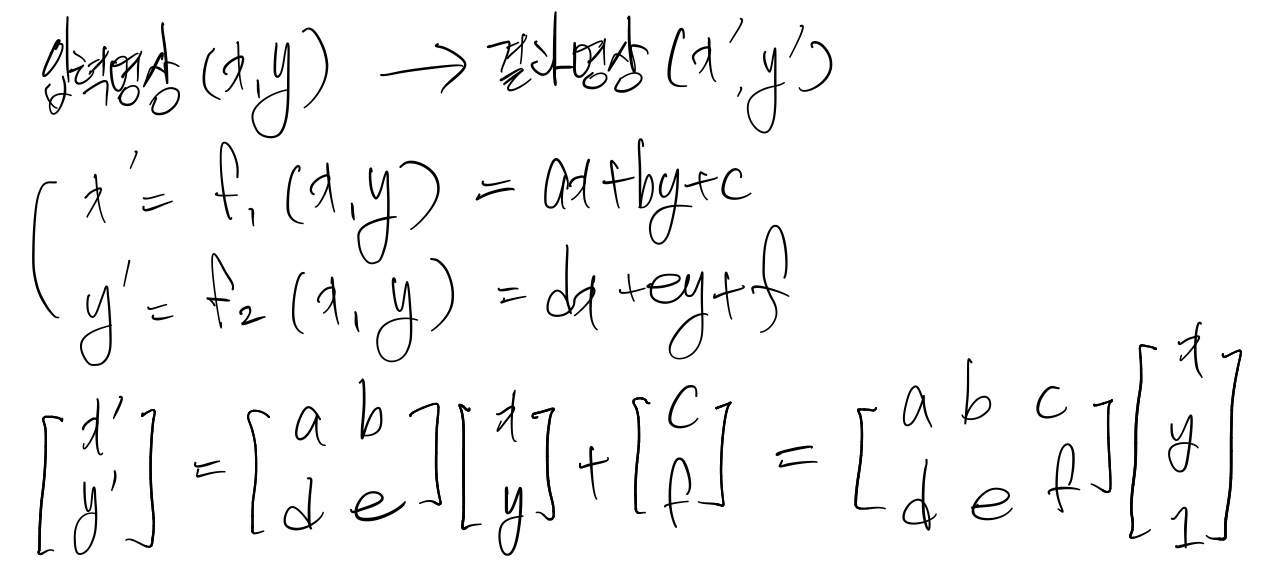 입력영상 (x, y) → 결과영상 (x', y')
x' = f₁ (x, y) = ax+by+c
y' = f₂ (x, y) = dx+ey+f
[x' y'] = [a b d e] [x y] + [c f] = [a b c d e f] [x y 1]